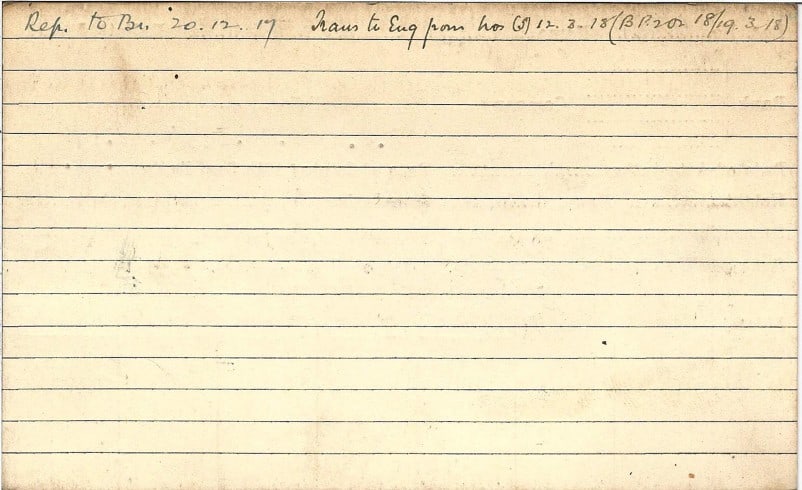 Rep. to Bn. 20.12.17 Trans to Eng from hos (S) 12.3.18 (B.P. 202 18/19.3.18)